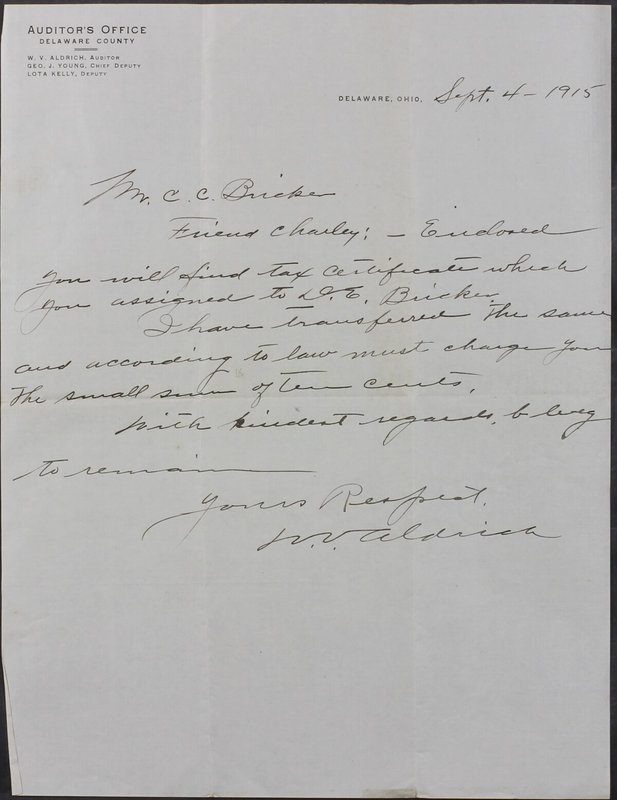 AUDITOR'S OFFICE
DELAWARE COUNTY
W. V. ALDRICH, AUDITOR
GEO. J. YOUNG, CHIEF DEPUTY
LOTA KELLY, DEPUTY
DELAWARE, OHIO, Sept. 4 - 1915
Mr. C. C. Bricker
Friend Charley: - Enclosed
you will find tax certificate which
you assigned to D. E. Bricker.
I have transferred the same
and according to law must charge you
the small sum of ten cents.
With kindest regards, beg
to remain
Yours Respect.
W. V. Aldrich